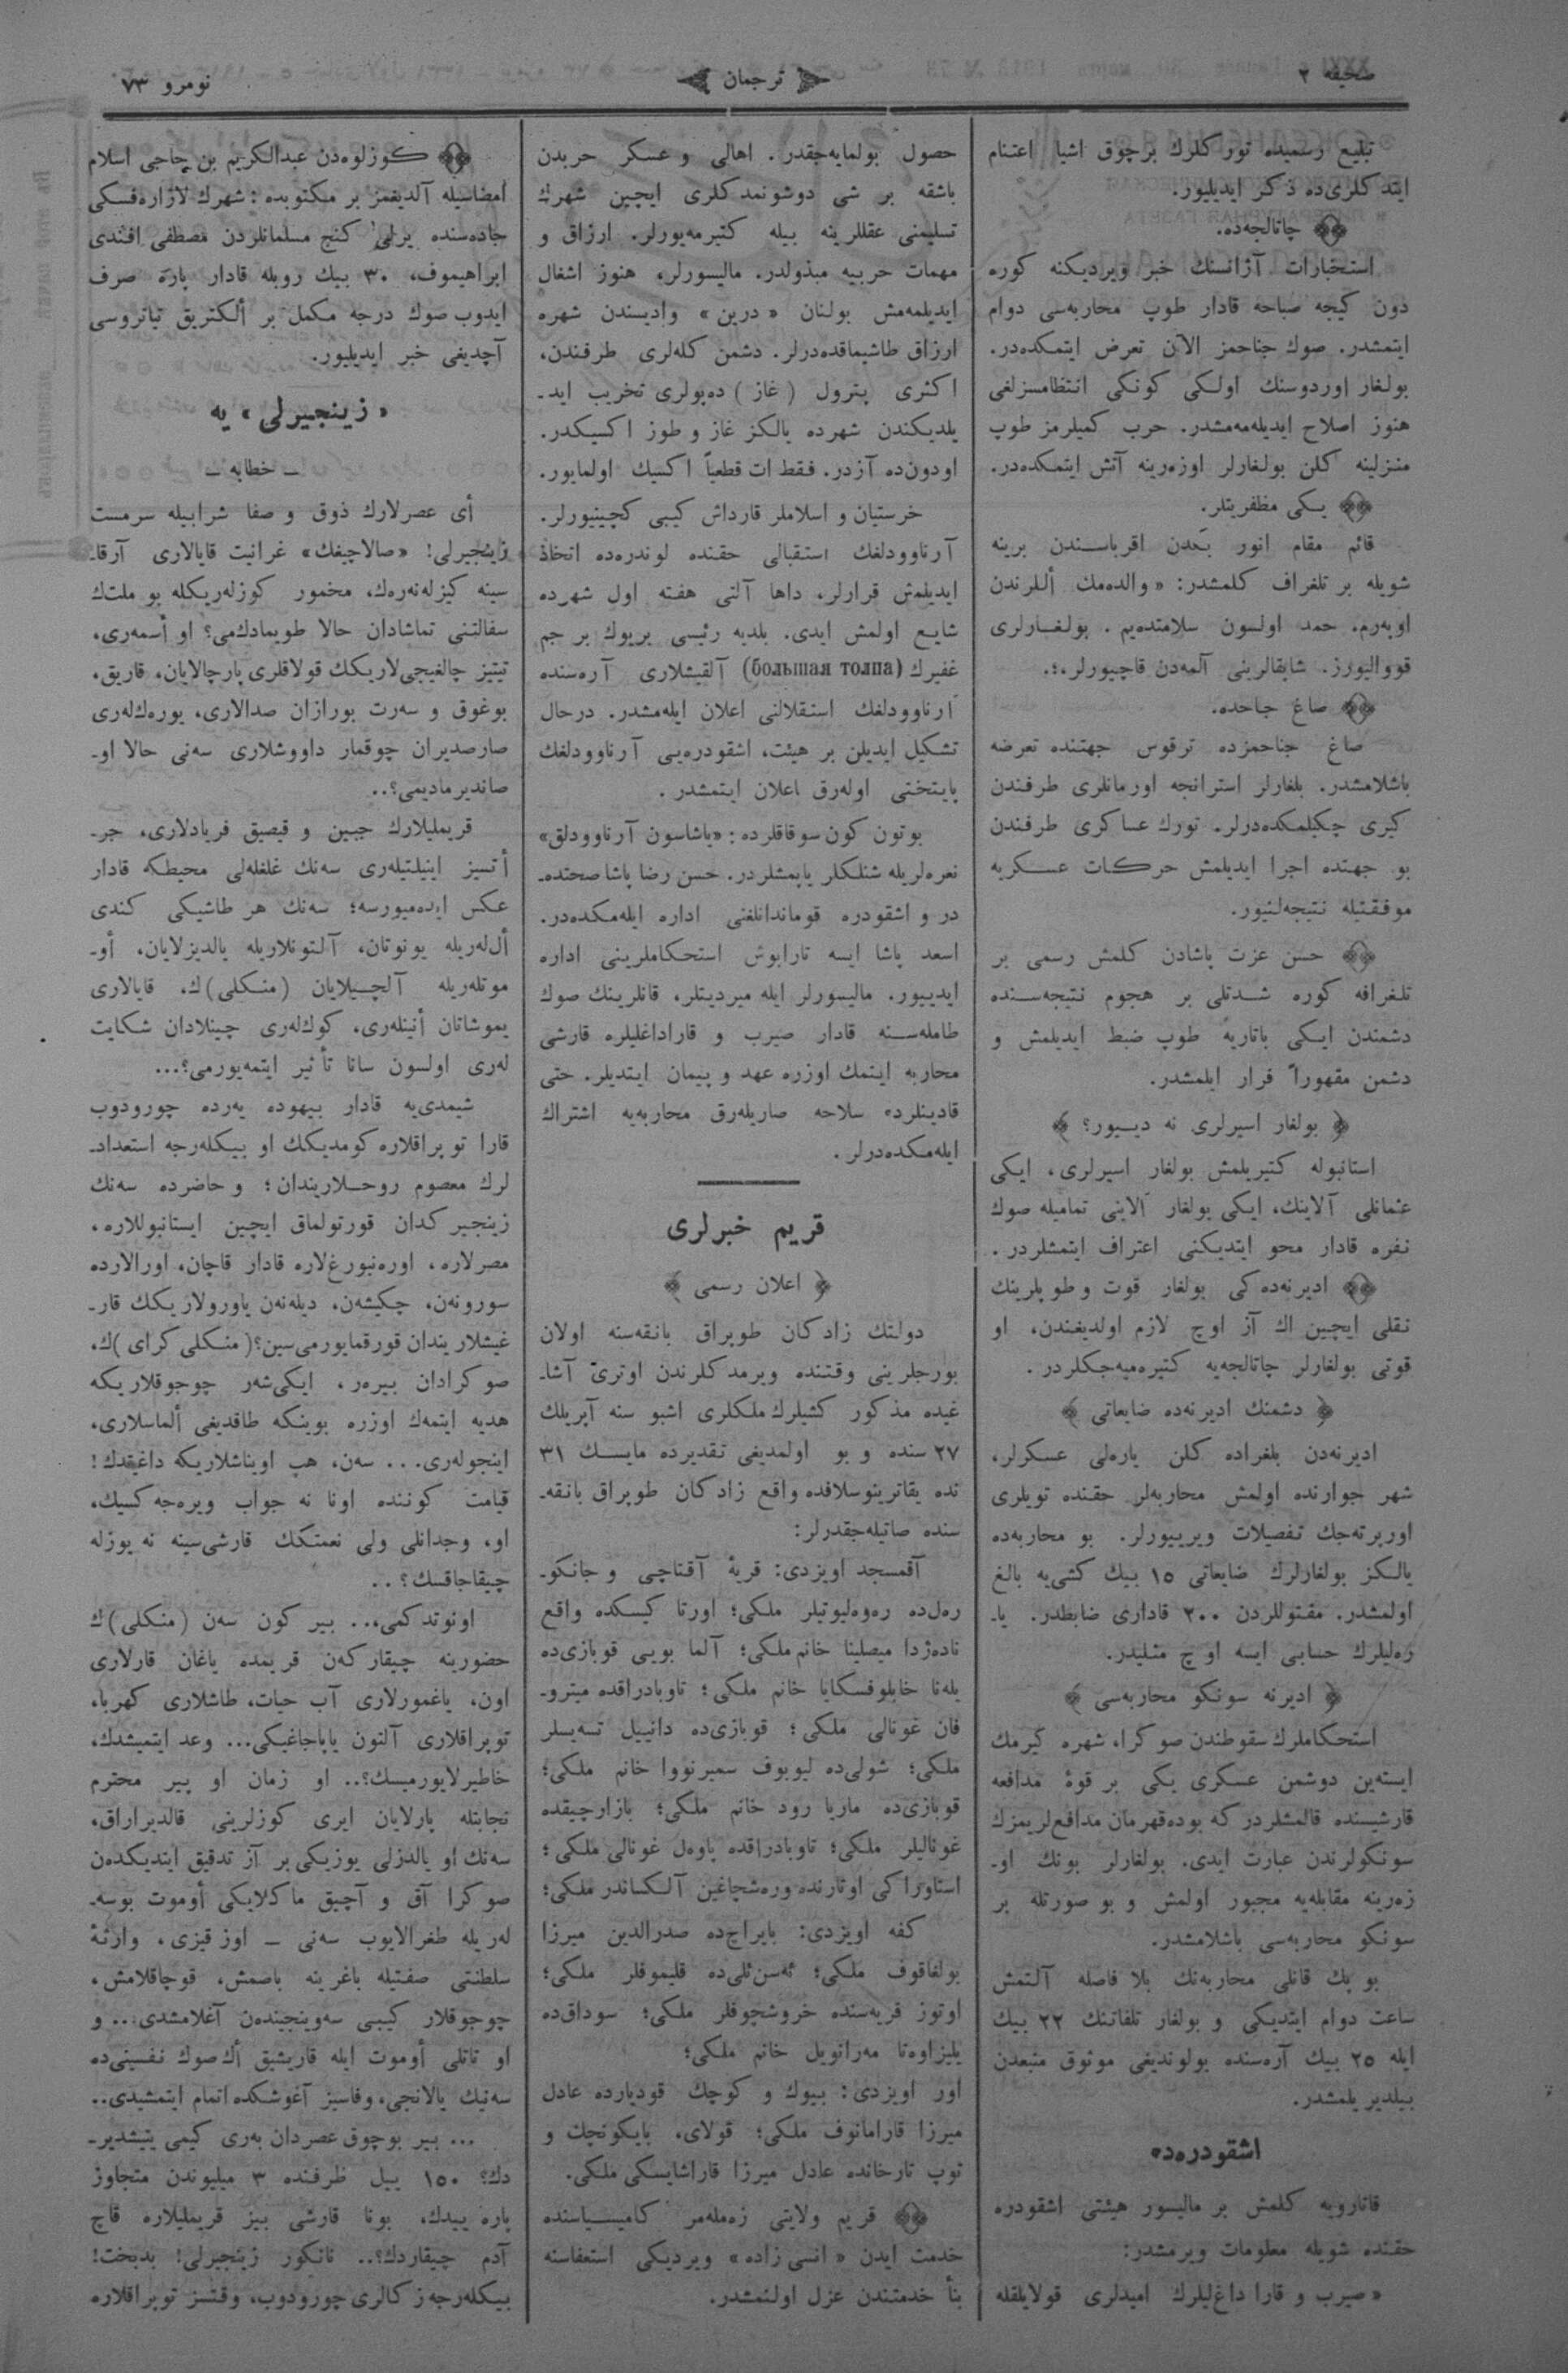 صحیفه ۲
ترجمان
نومرو ۷۳
تبلیغ رسمیده تورکلرك برچوق اشیا اغتنام
ایتدکلری‌ده ذکر ایدیلیور.
چاتالجه‌ده.
استخبارات آژانسنك خبر ویردیکنه کوره
دون کیجه صباحه قادار طوپ محاربه‌سی دوام
ایتمشدر. صوك جناحمز الآن تعرض ایتمکده‌در.
بولغار اوردوسنك اولکی کونکی انتظامسزلغی
هنوز اصلاح ایدیله‌مه‌مشدر. حرب کمیلرمز طوپ
منزلینه کلن بولغارلر اوزه‌رینه آتش ایتمکده‌در.
یـکی مظفریتلر.
قائم مقام انور بـکدن اقرباسـندن برینه
شویله بر تلغراف کلمشدر: « والده‌مك أللرندن
اوپه‌رم. حمد اولسون سلامتده‌یم . بولغـارلری
قووالیورز. شاپقالرینی آلمه‌دن قاچیورلر.»
صاغ جناحده.
صاغ جناحمزده ترقوس جهتنده تعرضه
باشلامشدر. بلغارلر استرانجه اورمانلری طرفندن
کیری چکیلمکده‌درلر. تورك عساکری طرفندن
بو جهتده اجرا ایدیلمش حرکات عسـکریه
موفقتیله نتیجه‌لنیور.
حسن عزت پاشادن کلمش رسمی بر
تلغرافه کوره شـدتلی بر هجوم نتیجه‌سـنده
دشمندن ایـکی باتاریهٔ طوپ ضبط ایدیلمش و
دشمن مقهوراً فرار ایلمشدر.
﴿ بولغار اسیرلری نه دیـیور؟ ﴾
استانبوله کتیریلمش بولغار اسیرلری، ایکی
عثمانلی آلاینك، ایکی بولغار آلاینی تمامیله صوك
نفره قادار محو ایتدیکنی اعتراف ایتمشلردر.
ادیرنه‌ده‌کی بولغار قوت و طوپلرینك
نقلی ایچین اك آز اوچ لازم اولدیغندن، او
قوتی بولغارلر چاتالجه‌یه کتیره‌میه‌جکلردر.
﴿ دشمنك ادیرنه‌ده ضایعاتی ﴾
ادیرنه‌دن بلغراده کلن یاره‌لی عسکرلر،
شهر جوارنده اولمش محاربه‌لر حقنده تویلری
اورپرته‌جك تفصیلات ویرییورلر. بو محاربه‌ده
یالکز بولغارلرك ضایعاتی ۱۵ بیك کشی‌یه بالغ
اولمشدر. مقتوللردن ۲۰۰ قاداری ضابطدر. یا-
ره‌لیلرك حسابی ایسه اوچ مثلیدر.
﴿ ادیرنه سونکو محاربه‌سی ﴾
استحکاملرك سقوطندن صوکرا، شهره کیرمك
ایسته‌ین دوشمن عسکری یکی بر قوهٔ مدافعه
قارشیسنده قالمشلردرکه بوده‌قهرمان مدافع‌لریمزك
سونکولرندن عبارت ایدی. بولغارلر بونك او-
زه‌رینه مقابله‌یه مجبور اولمش و بو صورتله بر
سونکو محاربه‌سی باشلامشدر.
بو پك قانلی محاربه‌نك بلا فاصله آلتمش
ساعت دوام ایتدیکی و بولغار تلفاتنك ۲۲ بیك
ایله ۲۵ بیك آره‌سنده بولوندیغی موثوق منبعدن
بیلدیریلمشدر.
اشقودره‌ده
قاتارویه کلمش بر مالیسور هیئتی اشقودره
حقنده شویله معلومات ویرمشدر:
« صیرب و قارا داغلیلرك امیدلری قولایلقله
حصول بولمایه‌جقدر. اهالی و عسکر حربدن
باشقه بر شی دوشونمدکلری ایچین شهرك
تسلیمنی عقللرینه بیله کتیرمه‌یورلر. ارزاق و
مهمات حربیه مبذولدر. مالیسورلر، هنوز اشغال
ایدیلمه‌مش بولنان « درین » وادیسندن شهره
ارزاق طاشیماقده‌درلر. دشمن کله‌لری طرفندن،
اکثری پترول (غاز) ده‌پولری تخریب اید-
یلدیکندن شهرده یالکز غاز و طوز اکسیکدر.
اودون‌ده آزدر. فقط ات قطعیاً اکسیك اولمایور.
خرستیان و اسلاملر قارداش کیبی کچینیورلر.
آرناوودلغك استقبالی حقنده لوندره‌ده اتخاذ
ایدیلمش قرارلر، داها آلتی هفته اول شهرده
شایـع اولمش ایدی. بلدیه رئیسی بریوك بر جم
غفیرك (большая толпа) آلقیشلاری آره‌سنده
آرناوودلغك استقلالنی اعلان ایله‌مشدر. درحال
تشکیل ایدیلن بر هیئت، اشقودره‌یی آرناوودلغك
پایتختی اوله‌رق اعلان ایتمشدر.
بوتون کون سوقاقلرده : «یاشاسون آرناوودلق»
نعره‌لریله شنلکلر یاپمشلردر. حسن رضا پاشا صحتده-
در و اشقودره قوماندانلغنی اداره ایله‌مکده‌در.
اسعد پاشا ایسه تارابوش استحکاملرینی اداره
ایدییور. مالیسورلر ایله میردیتلر، قانلرینك صوك
طامله‌سـنه قادار صیرب و قاراداغلیلره قارشی
محاربه ایتمك اوزره عهد و پیمان ایتدیلر. حتی
قادینلرده سلاحه صاریله‌رق محاربه‌یه اشتراك
ایله‌مکده‌درلر.
قریم خبرلری
﴿ اعلان رسمی ﴾
دولتك زادکان طوپراق بانقه‌سنه اولان
بورجلرینی وقتنده ویرمدکلرندن اوتری آشا-
غیده مذکور کشیلرك ملکلری اشبو سنه آپریلك
۲۷ سنده و بو اولمدیغی تقدیرده مایسـك ۳۱
نده یقاترینوسلافده واقع زادکان طوپراق بانقه-
سنده صاتیله‌جقدرلر:
آقمسجد اویزدی: قریهٔ آقتاچی و جانکو-
ره‌ل‌ده ره‌وه‌لیوتیلر ملکی؛ اورتا کیسکده واقع
ناده‌ژدا میصلینا خانم ملکی؛ آلما بویی قوبازی‌ده
یله‌نا خاپلوفسکایا خانم ملکی؛ تاوبادراقده میترو-
فان غونالی ملکی؛ قوبازی‌ده دانییل تـه‌یسلر
ملکی؛ شولی‌ده لیوبوف سمیرنووا خانم ملکی؛
قوبازی‌ده ماریا رود خانم ملکی؛ بازارچیقده
غونالیلر ملکی؛ تاوبادراقده پاوه‌ل غونالی ملکی؛
استاوراکی اوتارنده وره‌شچاغین آلکساندر ملکی؛
کفه اویزدی: بایراچ‌ده صدرالدین میرزا
بولغاقوف ملکی؛ ئه‌سن‌ئلی‌ده قلیموفلر ملکی؛
اوتوز قریه‌سنده خروشچوفلر ملکی؛ سوداق‌ده
یلیزاوه‌تا مه‌رانویل خانم ملکی؛
اور اویزدی: بیوك و کوچك قودیارده عادل
میرزا قارامانوف ملکی؛ قولای، بایکونچك و
توپ تارخانده عادل میرزا قاراشایسکی ملکی.
قریم ولایتی زه‌مله‌مر کامیسـیاسنده
خدمت ایدن « انسی زاده » ویردیکی استعفاسنه
بناً خدمتندن عزل اولنمشدر.
کوزلوه‌دن عبدالکریم بن حاجی اسلام
امضاسیله آلدیغمز بر مکتوبده : شهرك لازاره‌فسکی
جاده‌سنده یرلی کنج مسلمانلردن مصطفی افندی
ابراهیموف، ۳۰ بیك روبله قادار پاره صرف
ایدوب صوك درجه مکمل بر ألکتریق تیاتروسی
آچدیغی خبر ایدیلیور.
« زینجیرلی » یه
ــ خطابه ــ
أی عصرلارك ذوق و صفا شرابیله سرمست
زینجیرلی! «صالاچیغك» غرانیت قایالاری آرقا-
سینه کیزله‌نه‌ره‌ك، مخمور کوزله‌ریکله بو ملتك
سفالتنی تماشادان حالا طویمادك‌می؟ او أسمه‌ری،
تیتیز چالغیجی‌لاریکك قولاقلری پارچالایان، قاریق،
بوغوق و سه‌رت بورازان صدالاری، یوره‌كله‌ری
صارصدیران چوقمار داووشلاری سه‌نی حالا او-
صاندیرمادیمی؟..
قریملیلارك جبین و قیصیق فریادلاری، جر-
أتسیز اینیلتیله‌ری سه‌نك غلغله‌لی محیطکه قادار
عکس ایده‌میورسه؛ سه‌نك هر طاشیکی کندی
أل‌له‌ریله یونوتان، آلتونلاریله یالدیزلایان، أو-
موتله‌ریله آلچـیلایان (منـکلی)ك، قایالاری
یموشاتان أنینله‌ری، کوكله‌ری چینلادان شکایت
له‌ری اولسون سانا تأثیر ایتمه‌یورمی؟...
شیمدی‌یه قادار بیهوده یه‌رده چورودوب
قارا توپراقلاره کومدیکك او بیکله‌رجه استعداد-
لرك معصوم روحـلاریندان؛ و حاضرده سه‌نك
زینجیرکدان قورتولماق ایچین ایستانبوللاره،
مصرلاره، اوره‌نبورغ‌لاره قادار قاچان، اورالارده
سورونه‌ن، چکیشه‌ن، دیله‌نه‌ن یاورولاریکك قار-
غیشلاریندان قورقمایورمی‌سین؟ (منـکلی کرای)ك،
صوکرادان بیره‌ر، ایکی‌شه‌ر چوجوقلاریکه
هدیه ایتمه‌ك اوزره بوینکه طاقدیغی ألماسلاری،
اینجوله‌ری... سه‌ن، هپ اویناشلاریکه داغیتدك!
قیامت کوننده اونا نه جواب ویره‌جه‌کسیك،
او، وجدانلی ولی نعمتکك قارشی‌سینه نه یوزله
چیقاجاقسك؟ ..
اونوتدکمی،.. بیر کون سه‌ن (منکلی)ك
حضورینه چیقارکه‌ن قریمده یاغان قارلاری
اون، یاغمورلاری آب حیات، طاشلاری کهربا،
توپراقلاری آلتون یاپاجاغیکی... وعد ایتمیشدك،
خاطیرلایورمیسك؟.. او زمان او پیر محترم
نجابتله پارلایان ایری کوزلرینی قالدیراراق،
سه‌نك او یالدزلی یوزیکی بر آز تدقیق ایتدیکده‌ن
صوکرا آق و آچیق ماکلایکی أوموت بوسه-
له‌ریله طغرالایوب سه‌نی ــ اوز قیزی، وارثهٔ
سلطنتی صفتیله باغرینه باصمش، قوجاقلامش،
چوجوقلار کیبی سه‌وینجینده‌ن آغلامشدی... و
او تاتلی أوموت ایله قاریشیق أك‌صوك نفسینی‌ده
سه‌نیك یالانجی، وفاسیز آغوشکده اتمام ایتمشیدی..
... بیر بوچوق عصردان به‌ری کیمی یتیشدیر-
دك؟ ۱۵۰ ییل ظرفنده ۳ میلیوندن متجاوز
پاره ییدك، بونا قارشی بیز قریملیلاره قاچ
آدم چیقاردك؟.. نانکور زینجیرلی! بدبخت!
بیکله‌رجه زکالری چورودوب، وقتسز توپراقلاره